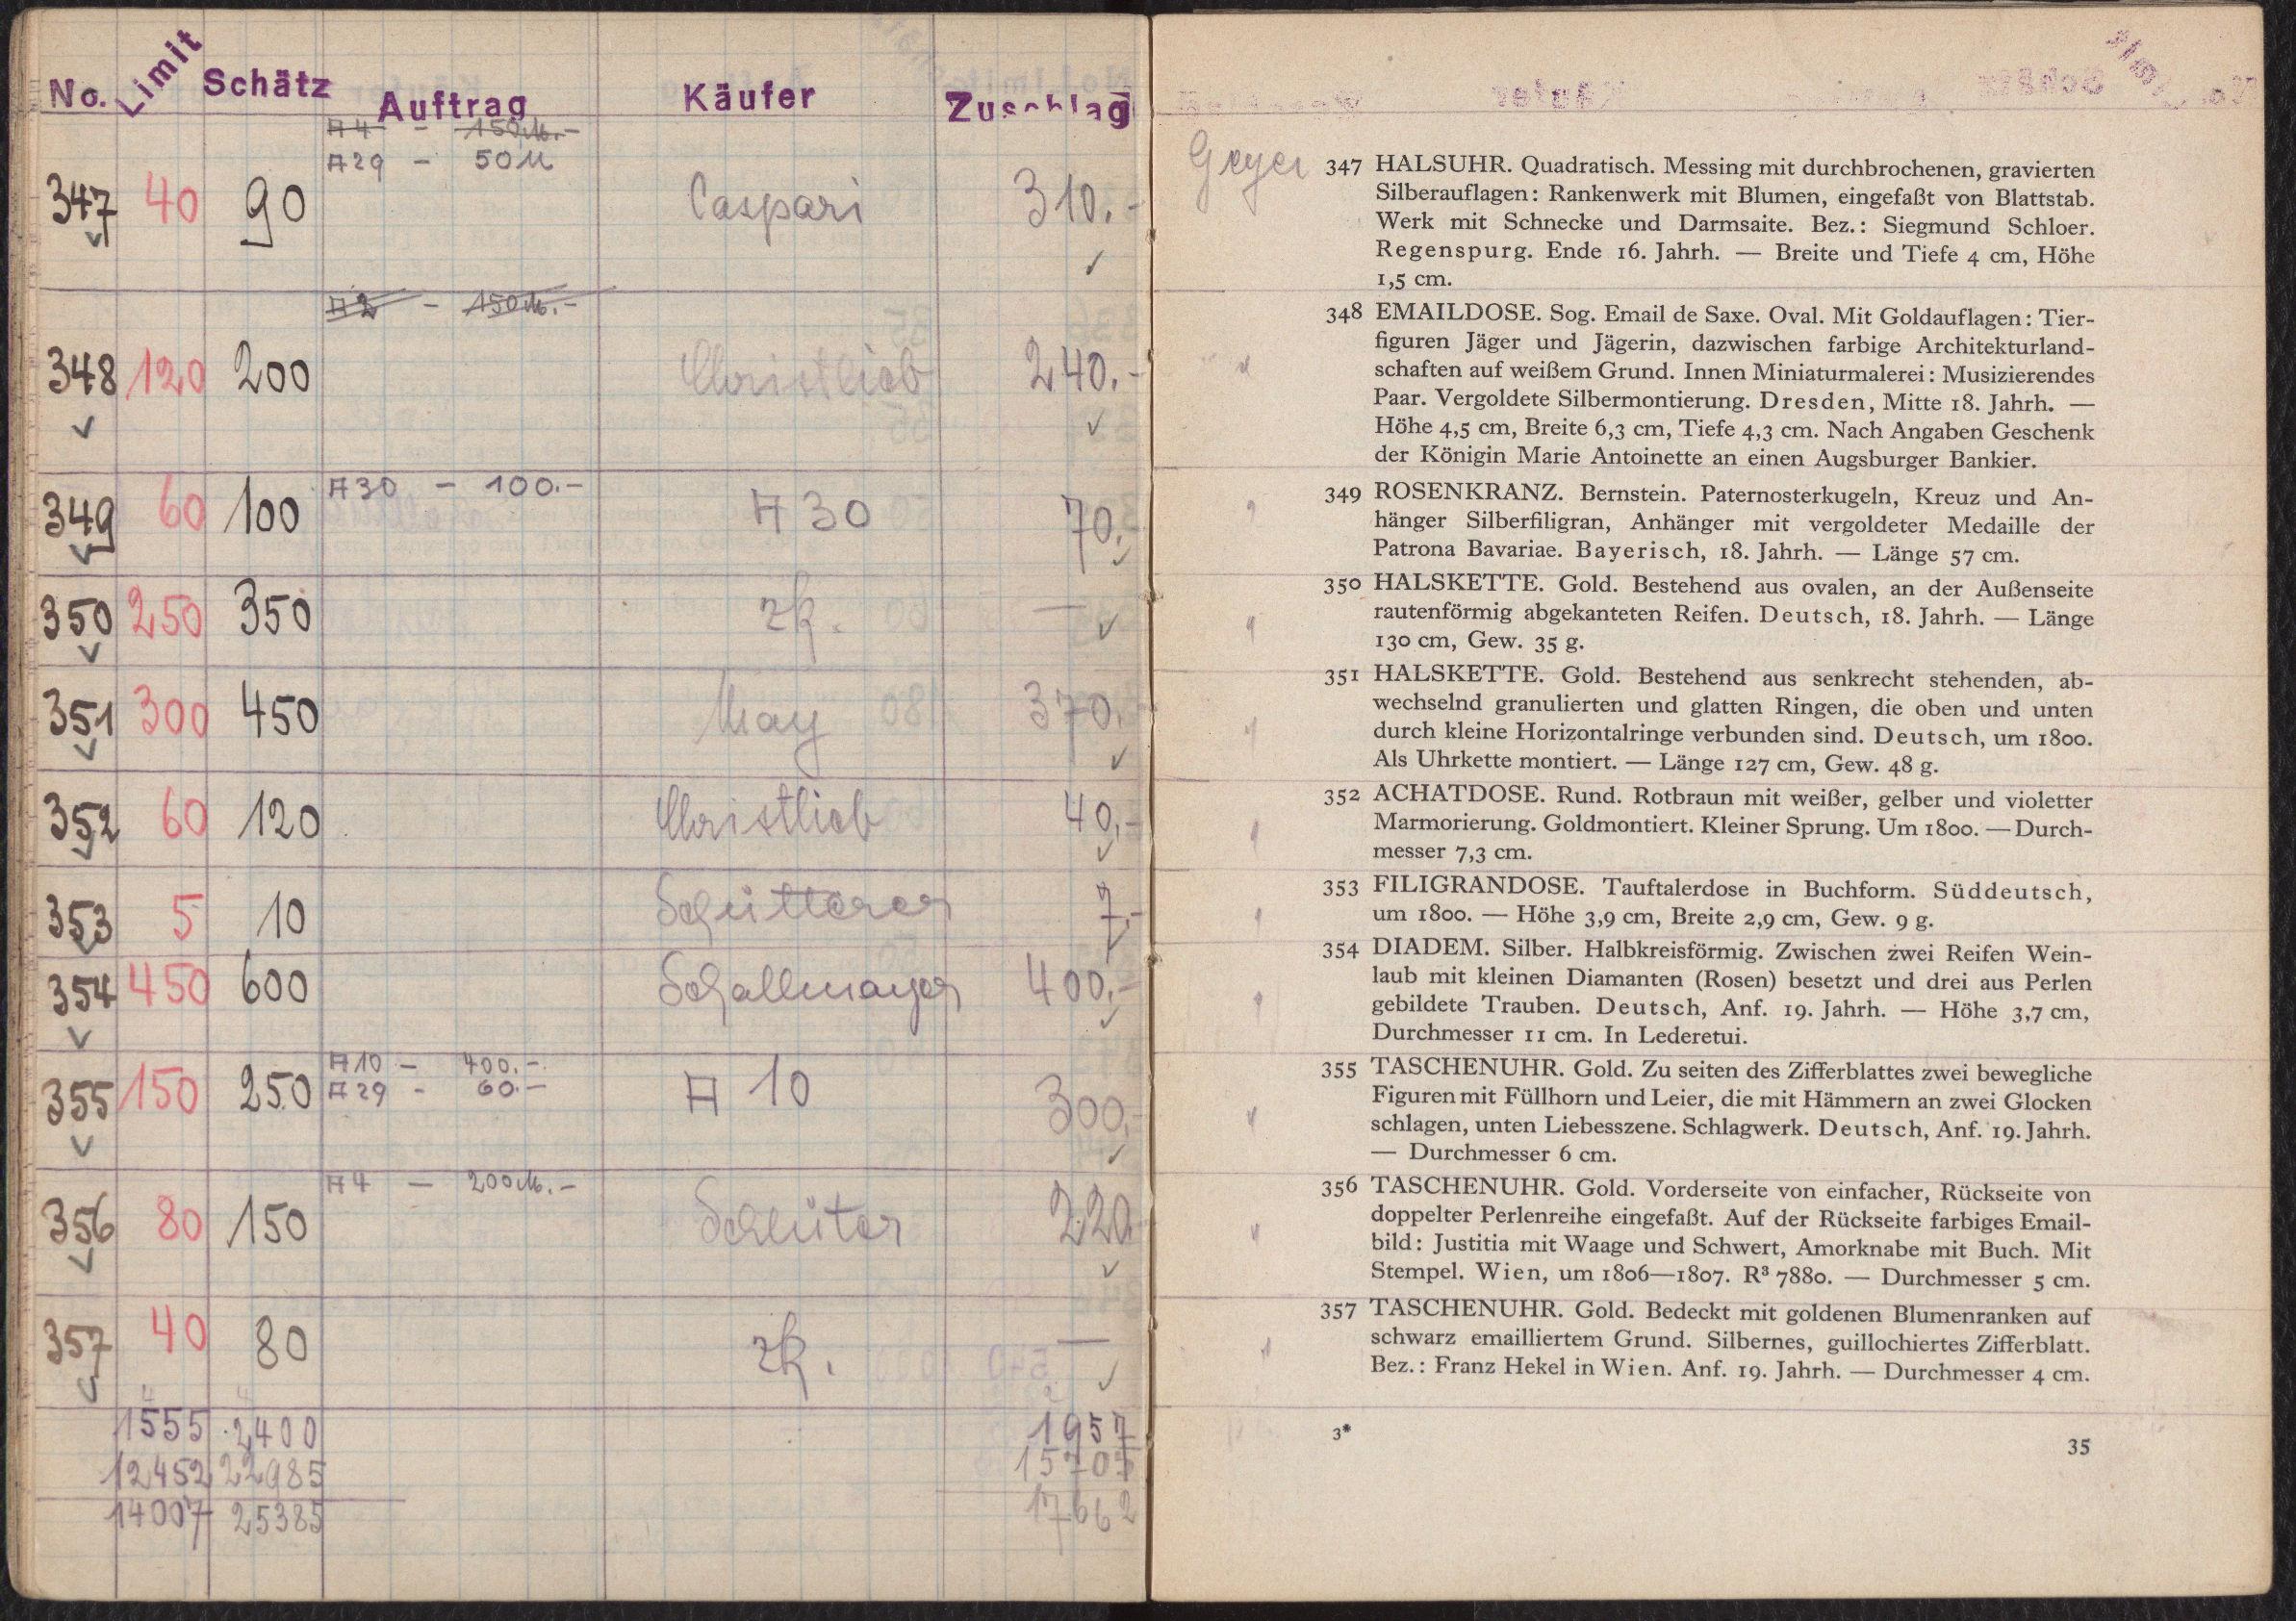 No. Limit Schätz Auftrag Käufer Zuschlag
A 4 - 150 M.-
A 29 - 50 M
347 40 90 Caspari 310.-
A 2 - 150 M.-
348 120 200 Christlieb 240.-
A 30 - 100.-
349 60 100 A 30 70.-
350 250 350 zk. —
351 300 450 May 370.-
352 60 120 Christlieb 40.-
353 5 10 7.-
354 450 600 Schallmayer 400.-
A 10 - 400.-
A 29 - 60.-
355 150 250 A 10 300.-
A 4 - 200 M.-
356 80 150 Schlüter 220.-
357 40 80 zk. —
1555 2400 1957
12452 22985 15705
14007 25385 17662
Geyer
347 HALSUHR. Quadratisch. Messing mit durchbrochenen, gravierten
Silberauflagen: Rankenwerk mit Blumen, eingefaßt von Blattstab.
Werk mit Schnecke und Darmsaite. Bez.: Siegmund Schloer.
Regenspurg. Ende 16. Jahrh. — Breite und Tiefe 4 cm, Höhe
1,5 cm.
348 EMAILDOSE. Sog. Email de Saxe. Oval. Mit Goldauflagen: Tier-
figuren Jäger und Jägerin, dazwischen farbige Architekturland-
schaften auf weißem Grund. Innen Miniaturmalerei: Musizierendes
Paar. Vergoldete Silbermontierung. Dresden, Mitte 18. Jahrh. —
Höhe 4,5 cm, Breite 6,3 cm, Tiefe 4,3 cm. Nach Angaben Geschenk
der Königin Marie Antoinette an einen Augsburger Bankier.
349 ROSENKRANZ. Bernstein. Paternosterkugeln, Kreuz und An-
hänger Silberfiligran, Anhänger mit vergoldeter Medaille der
Patrona Bavariae. Bayerisch, 18. Jahrh. — Länge 57 cm.
350 HALSKETTE. Gold. Bestehend aus ovalen, an der Außenseite
rautenförmig abgekanteten Reifen. Deutsch, 18. Jahrh. — Länge
130 cm, Gew. 35 g.
351 HALSKETTE. Gold. Bestehend aus senkrecht stehenden, ab-
wechselnd granulierten und glatten Ringen, die oben und unten
durch kleine Horizontalringe verbunden sind. Deutsch, um 1800.
Als Uhrkette montiert. — Länge 127 cm, Gew. 48 g.
352 ACHATDOSE. Rund. Rotbraun mit weißer, gelber und violetter
Marmorierung. Goldmontiert. Kleiner Sprung. Um 1800. — Durch-
messer 7,3 cm.
353 FILIGRANDOSE. Tauftalerdose in Buchform. Süddeutsch,
um 1800. — Höhe 3,9 cm, Breite 2,9 cm, Gew. 9 g.
354 DIADEM. Silber. Halbkreisförmig. Zwischen zwei Reifen Wein-
laub mit kleinen Diamanten (Rosen) besetzt und drei aus Perlen
gebildete Trauben. Deutsch, Anf. 19. Jahrh. — Höhe 3,7 cm,
Durchmesser 11 cm. In Lederetui.
355 TASCHENUHR. Gold. Zu seiten des Zifferblattes zwei bewegliche
Figuren mit Füllhorn und Leier, die mit Hämmern an zwei Glocken
schlagen, unten Liebesszene. Schlagwerk. Deutsch, Anf. 19. Jahrh.
— Durchmesser 6 cm.
356 TASCHENUHR. Gold. Vorderseite von einfacher, Rückseite von
doppelter Perlenreihe eingefaßt. Auf der Rückseite farbiges Email-
bild: Justitia mit Waage und Schwert, Amorknabe mit Buch. Mit
Stempel. Wien, um 1806—1807. R³ 7880. — Durchmesser 5 cm.
357 TASCHENUHR. Gold. Bedeckt mit goldenen Blumenranken auf
schwarz emailliertem Grund. Silbernes, guillochiertes Zifferblatt.
Bez.: Franz Hekel in Wien. Anf. 19. Jahrh. — Durchmesser 4 cm.
3*
35